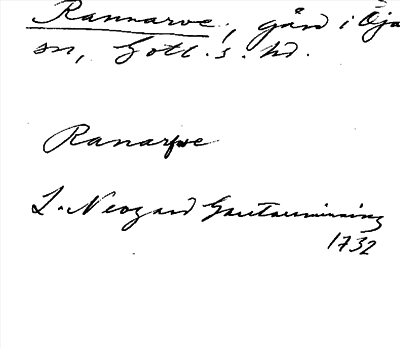 Rannarve, gård i Öja
sn, Gotl. s. hd.
Ranarfve
L. Neogard Gautauminning
1732